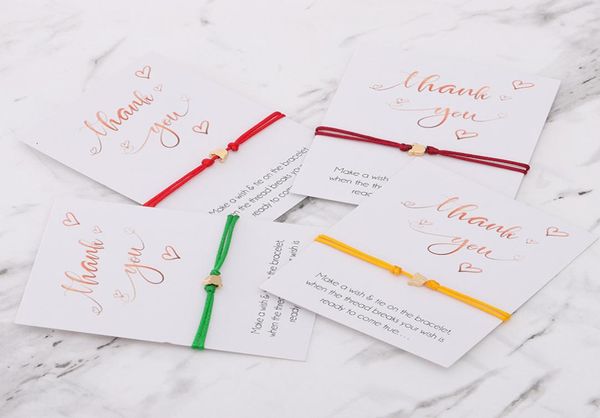 thank
you
Make a wish & tie on the bracelet
when the thread breaks
thank
you
Make a wish & tie on the bracelet
when the th
thank
you
Make a wish & tie on the bracelet
when the thread breaks
wish is
ready to
thank
you
Make a wish & tie on the bracelet,
when the thread breaks your wish is
ready to come true...